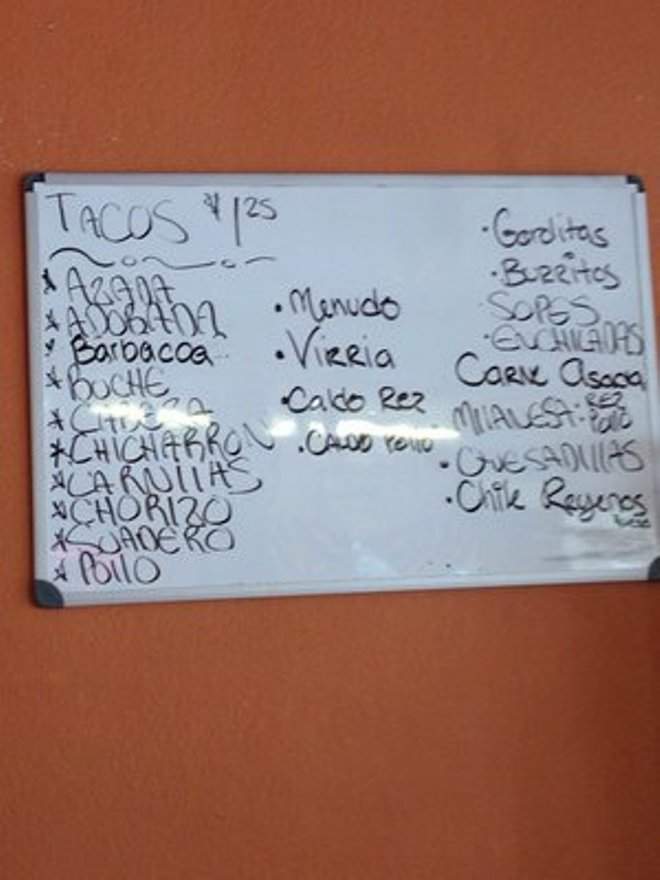 TACOS $1 25
* AZADA
* ADOBADA
* Barbacoa
* BUCHE
* CABEZA
* CHICHARRON
* CARNITAS
* CHORIZO
* SUADERO
* POLLO
• Menudo
• Virria
• Caldo Rez
• CALDO POLLO
• Gorditas
• Burritos
SOPES
• ENCHILADAS
Carne Asada
MILANESA: REZ
POLLO
• QUESADILLAS
• Chile Reyenos
Queso